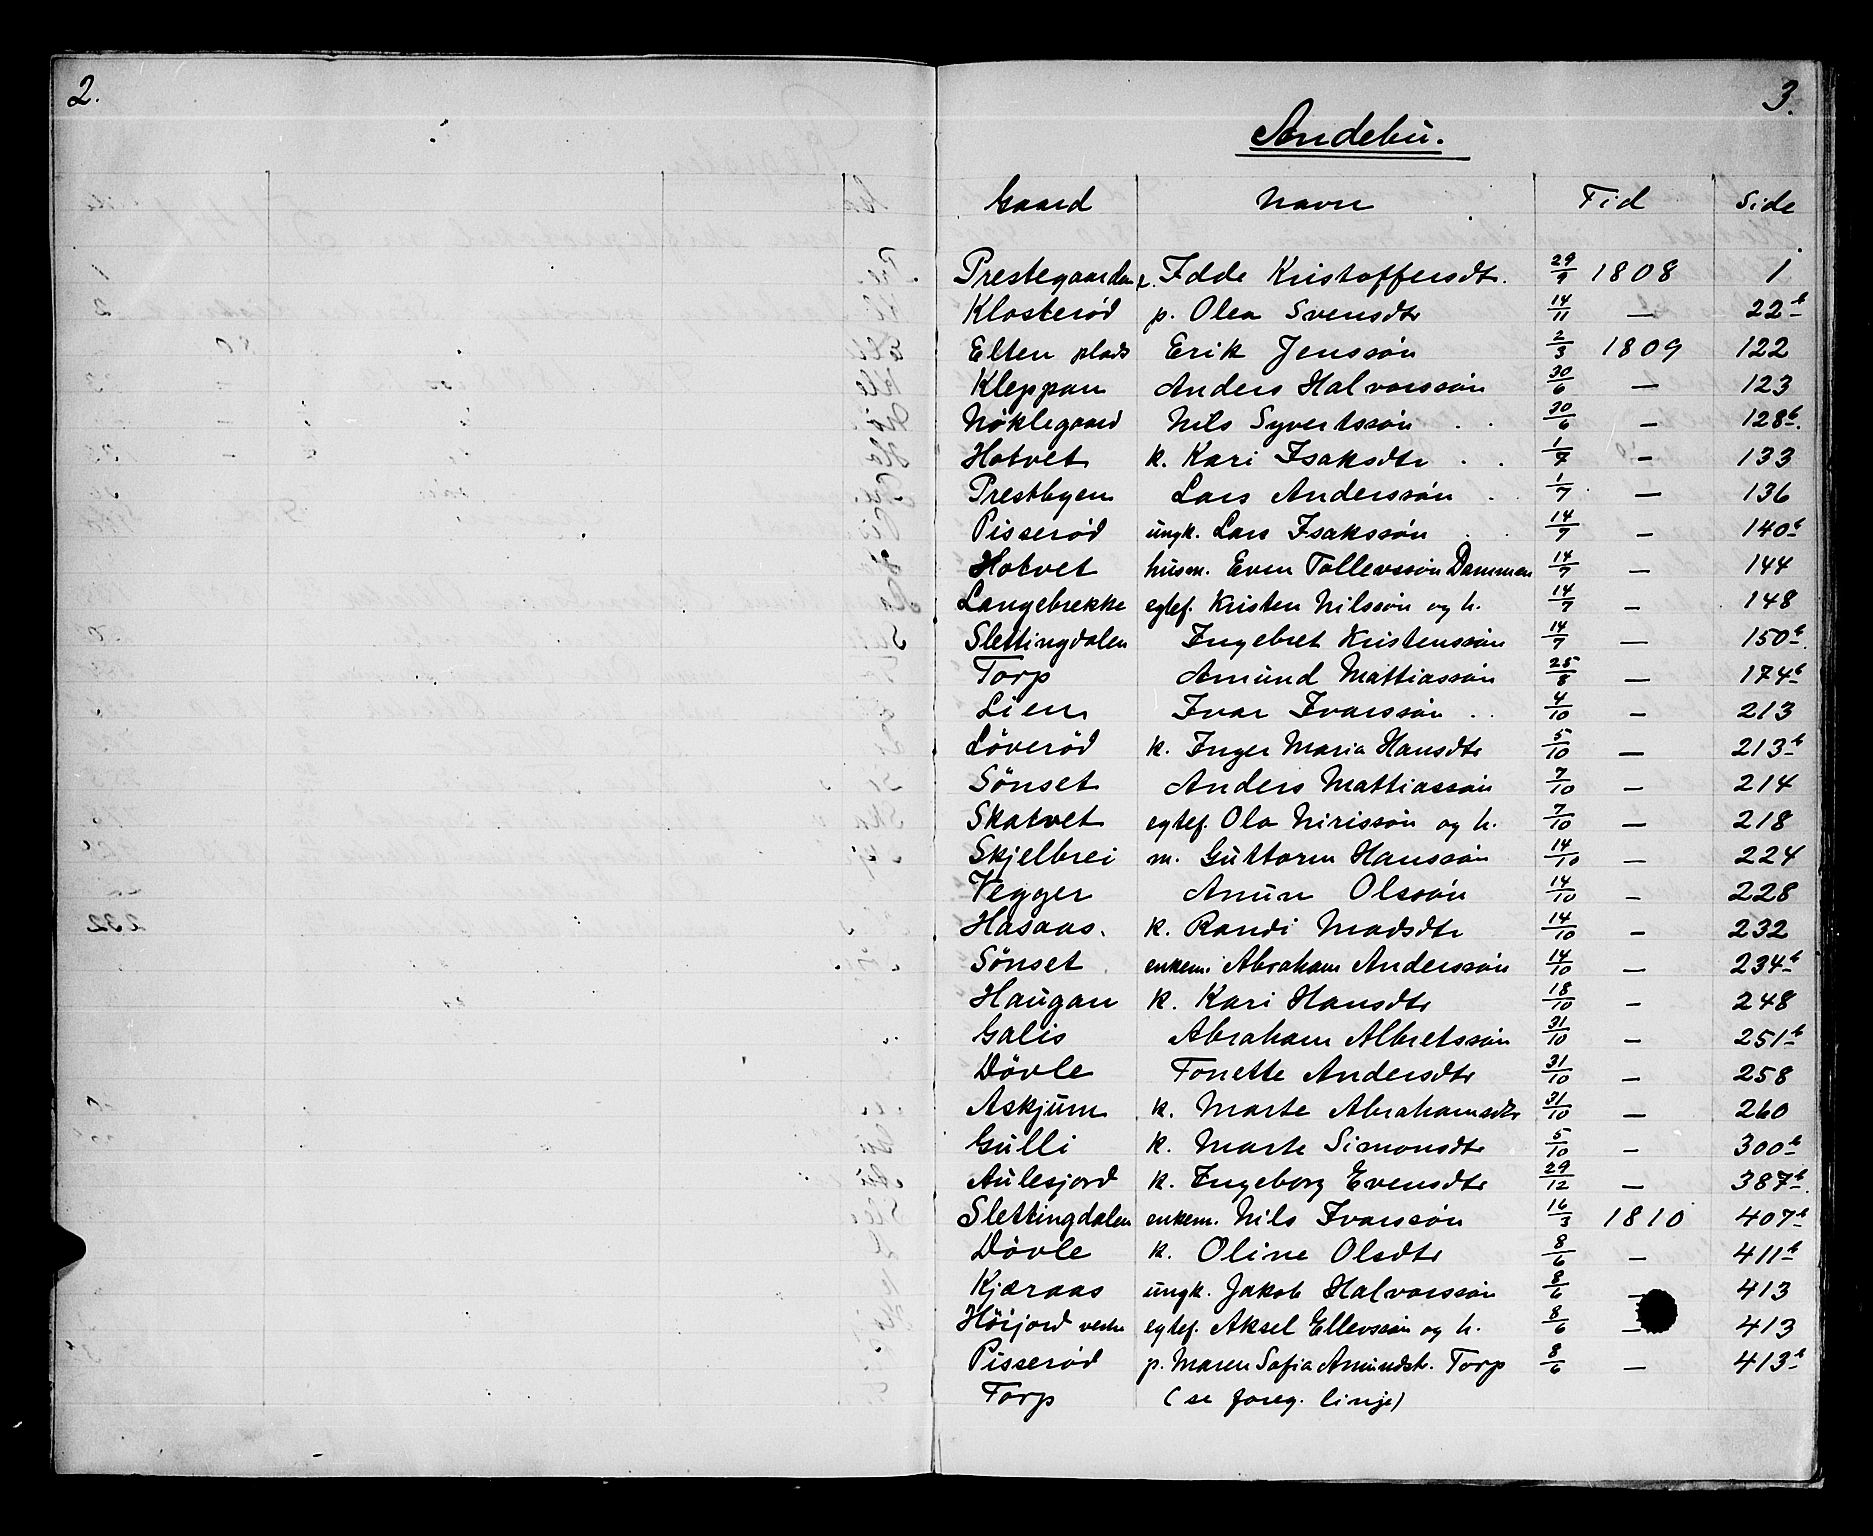 2.
3.
Andebu.
Gaard Navn Tid Side
Prestegaarden p. Idde Kristoffersdtr. 29/9 1808 1
Klosterød p. Olea Svensdtr 14/11 — 22b
Elten plads Erik Jenssøn 2/3 1809 122
Kleppan Anders Halvorssøn 30/6 — 123
Nøklegaard Nils Syvertssøn 30/6 — 128b.
Hotvet k. Kari Isaksdtr 1/7 — 133
Prestbyen Lars Anderssøn 1/7 — 136
Pisserød ungk. Lars Isakssøn 14/7 — 140b
Hotvet husm. Even Tollevssøn Dammen 14/7 — 144
Langebrekke egtef. Kristen Nilssøn og h. 14/7 — 148
Slettingdalen Ingebret Kristenssøn 14/7 — 150b
Torp Amund Mattiassøn 25/8 — 174b
Lien Ivar Ivarssøn 4/10 — 213
Löveröd k. Inger Maria Hansdtr 5/10 — 213b
Sönset Anders Mattiassøn 7/10 — 214
Skatvet egtef. Ola Nirissøn og h. 7/10 — 218
Skjelbrei m. Guttorm Hanssøn 14/10 — 224
Vegger Anun Olssøn 14/10 — 228
Hasaas. k. Randi Madsdtr 14/10 — 232
Sönset enkem. Abraham Anderssøn 14/10 — 234b
Haugan k. Kari Hansdtr 18/10 — 248
Galis Abraham Albretssøn 31/10 — 251b
Dövle Tonette Andersdtr 31/10 — 258
Askjum k. Marte Abrahamsdtr 31/10 — 260
Gulli k. Marte Simonsdtr 5/10 — 300b
Aulesjord k. Ingeborg Evensdtr 29/12 — 387b.
Slettingdalen enkem. Nils Ivarssøn 16/3 1810 407b
Dövle k. Oline Olsdtr 8/6 — 411b
Kjæraas ungk. Jakob Halvorssøn 8/6 — 413
Höijord vestre egtef. Aksel Ellevssøn og h. 8/6 — 413
Pisserød p. Maren Sofia Amundsdtr. Torp 8/6 — 413b
Torp (se foreg. linje)